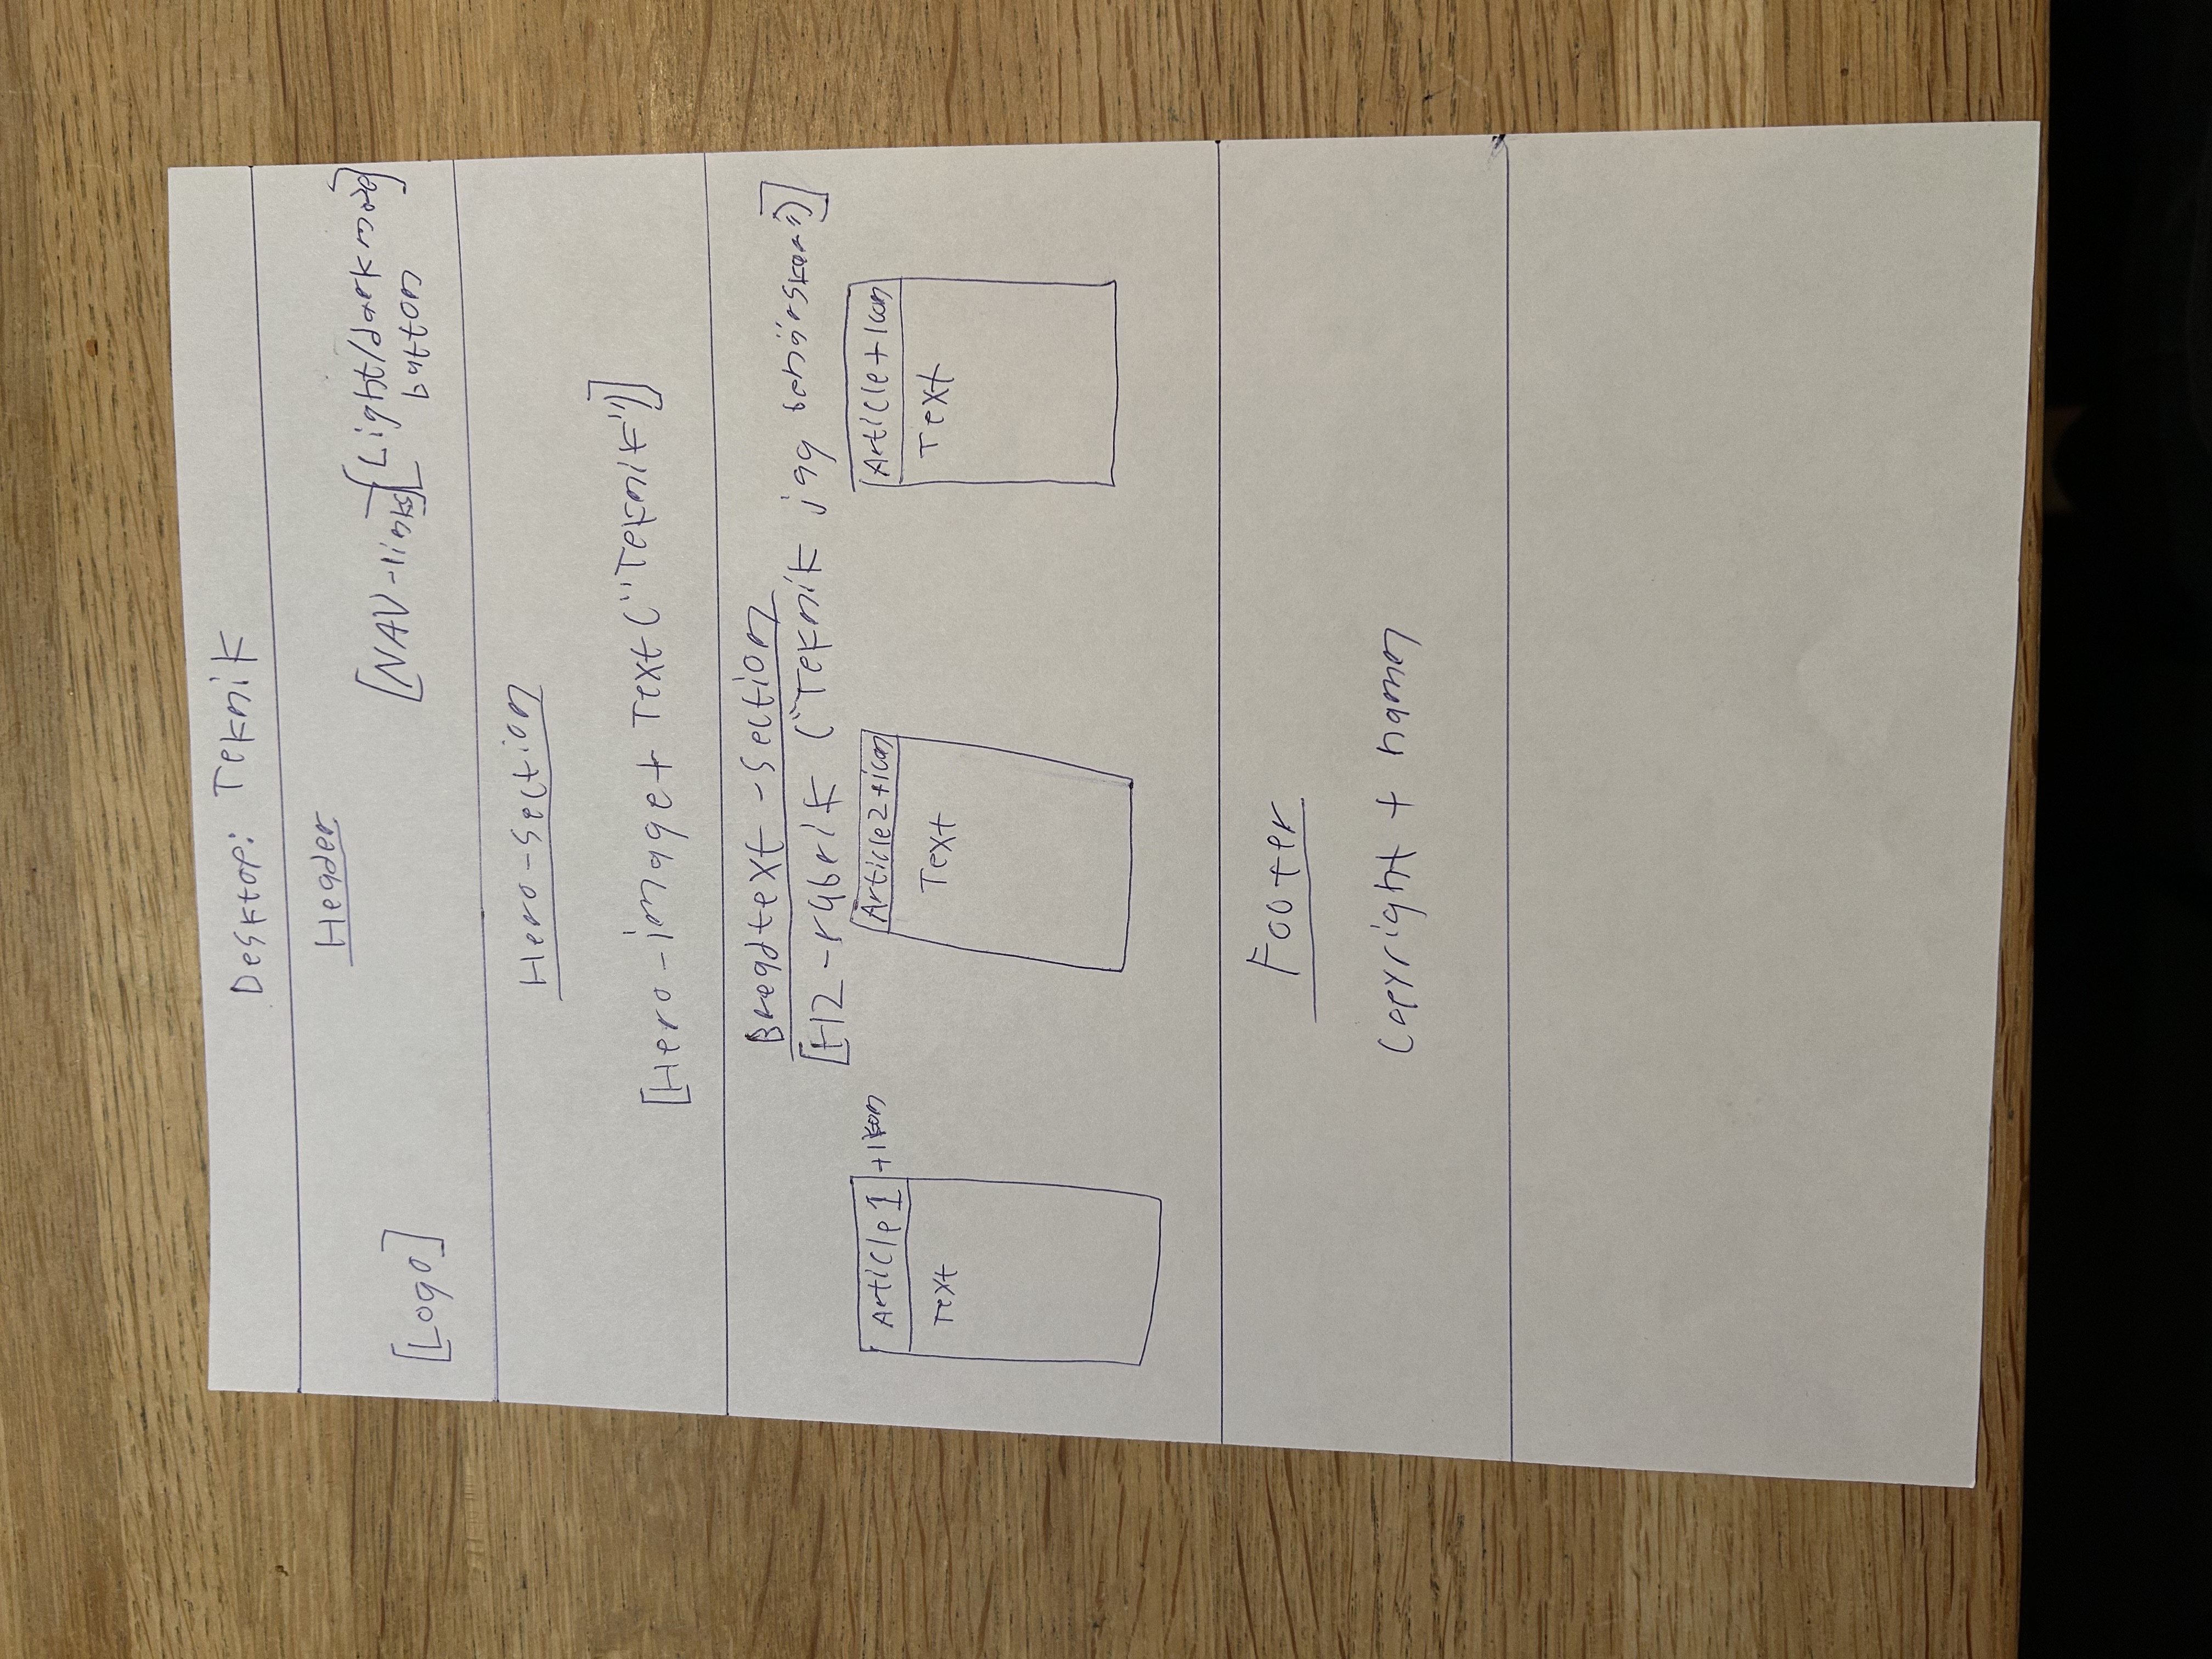 Desktop: Teknik
Header
[Logo]
[NAV-links] [Light/dark mode
button]
Hero-section
[Hero-image + Text ("Teknik")]
Breadtext-section
[H2-rubrik ("Teknik jag behärskar")]
Article 1 +Ikon
Text
Article 2 + icon
Text
Article + Icon
Text
Footer
Copyright + namn